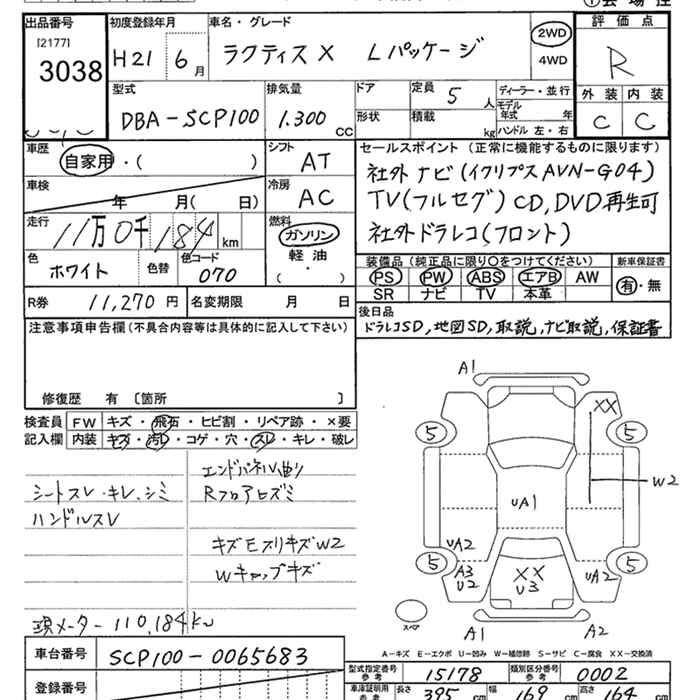 出品番号 初度登録年月 車名・グレード 評価点
[2177]
3038 H21 6月 ラクティス X Lパッケージ 2WD R
4WD
型式 排気量 ドア 定員 5人 ディーラー・並行 外装 内装
DBA-SCP100 1.300 CC 形状 積載 kg モデル年式 年 C C
ハンドル 左・右
車歴 自家用・( ) シフト AT セールスポイント (正常に機能するものに限ります)
社外ナビ(イクリプスAVN-G04)
車検 年 月( 日) 冷房 AC TV(フルセグ) CD,DVD再生可
走行 11万0千184km 燃料 ガソリン 社外ドラレコ(フロント)
軽油
( ・ )
色 ホワイト 色替 色コード 070 装備品 (純正品に限り○をつけてください) 新車保証書
PS PW ABS エアB AW 有・無
SR ナビ TV 本革
R券 11,270円 名変期限 月 日 後日品
ドラレコSD,地図SD,取説,ナビ取説,保証書
注意事項申告欄(不具合内容等は具体的に記入して下さい)
修復歴 有 〔箇所 〕
検査員記入欄 FW キズ・飛石・ヒビ割・リペア跡・×要
内装 キズ・汚レ・コゲ・穴・スレ・キレ・破レ
エンドパネル曲り
シートスレ・キレ、シミ Rフロアヒズミ
ハンドルスレ
キズEスリキズW2
Wキャップキズ
現メーター 110,184km
A1
XX
5 5
W2
UA1
UA2 5 A3 U2 XX U3 UA2 5
スペア A1 A2
A-キズ E-エクボ U-凹み W-補修跡 S-サビ C-腐食 XX-交換済
車台番号 SCP100-0065683
登録番号
型式指定番号 参考 15178 類別区分番号 参考 0002
車庫証明用 参考 長さ 395 cm 幅 169 cm 高さ 164 cm